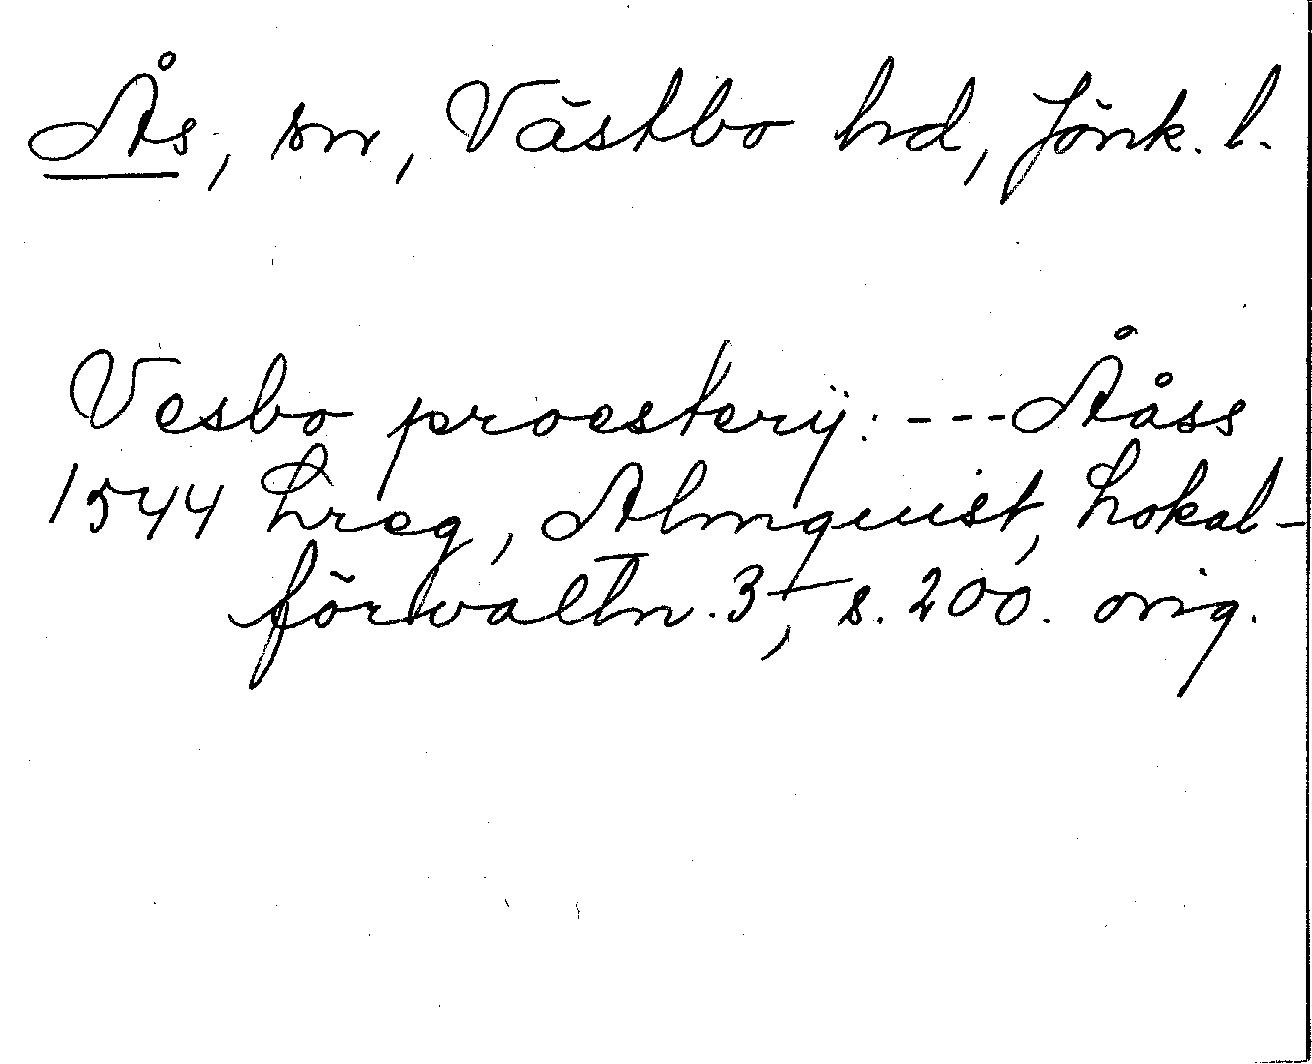 Ås, sn, Västbo hd, Jönk. l.
Vesbo proesterÿ: --- Ååss
1544 Lreg, Almquist, Lokal-
förvaltn. 3, s. 200. orig.